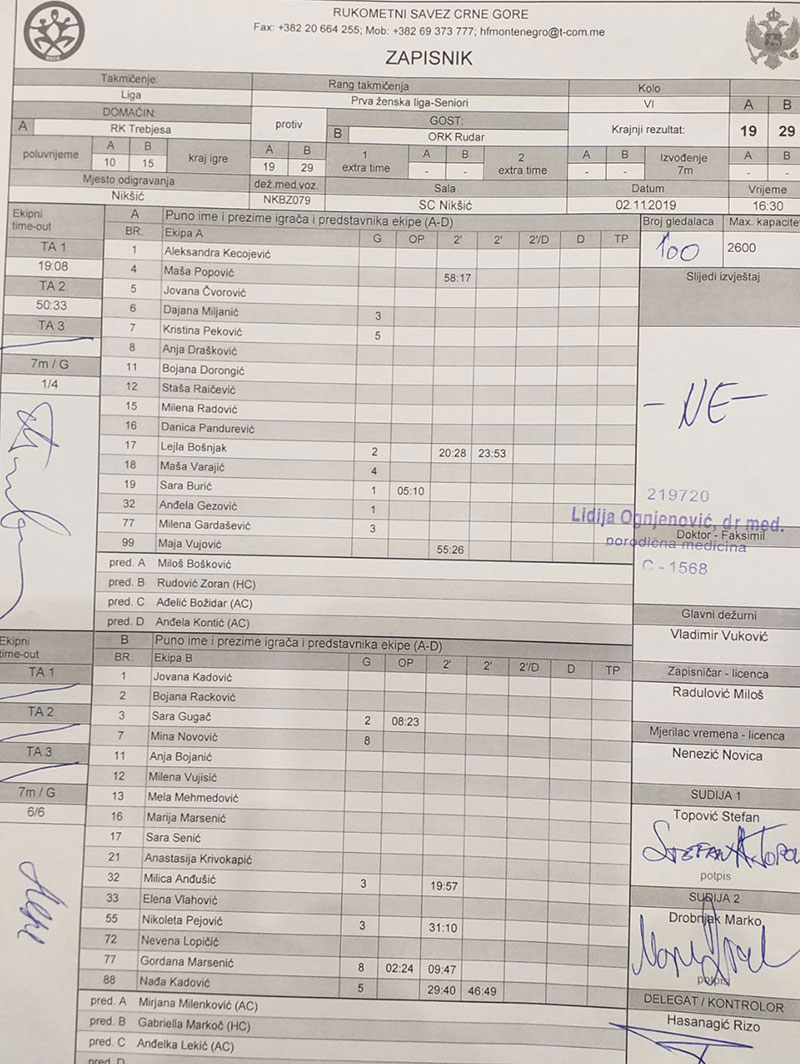 RUKOMETNI SAVEZ CRNE GORE
Fax: +382 20 664 255; Mob: +382 69 373 777; hfmontenegro@t-com.me
ZAPISNIK
Takmičenje: Rang takmičenja Kolo
Liga Prva ženska liga-Seniori VI A B
DOMAĆIN: protiv GOST: Krajnji rezultat: 19 29
A RK Trebjesa B ORK Rudar
poluvrijeme A B kraj igre A B 1 extra time A B 2 extra time A B Izvođenje 7m A B
10 15 19 29 - - - - - -
Mjesto odigravanja dež.med.voz. Sala Datum Vrijeme
Nikšić NKBZ079 SC Nikšić 02.11.2019 16:30
Ekipni time-out A Puno ime i prezime igrača i predstavnika ekipe (A-D) Broj gledalaca Max. kapacite
BR. Ekipa A G OP 2' 2' 2'/D D TP 100 2600
TA 1 1 Aleksandra Kecojević
19:08 4 Maša Popović 58:17 Slijedi izvještaj
TA 2 5 Jovana Čvorović
50:33 6 Dajana Miljanić 3
TA 3 7 Kristina Peković 5
8 Anja Drašković
7m / G 11 Bojana Dorongić
1/4 12 Staša Raičević - NE -
15 Milena Radović
16 Danica Pandurević
17 Lejla Bošnjak 2 20:28 23:53
18 Maša Varajić 4
19 Sara Burić 1 05:10 219720
32 Anđela Gezović 1 Lidija Ognjenović, dr med.
77 Milena Gardašević 3 Doktor - Faksimil
99 Maja Vujović 55:26 porodična medicina
pred. A Miloš Bošković C - 1568
pred. B Rudović Zoran (HC)
pred. C Ađelić Božidar (AC) Glavni dežurni
pred. D Anđela Kontić (AC) Vladimir Vuković
Ekipni time-out B Puno ime i prezime igrača i predstavnika ekipe (A-D)
BR. Ekipa B G OP 2' 2' 2'/D D TP Zapisničar - licenca
TA 1 1 Jovana Kadović Radulović Miloš
2 Bojana Racković
TA 2 3 Sara Gugač 2 08:23 Mjerilac vremena - licenca
7 Mina Novović 8 Nenezić Novica
TA 3 11 Anja Bojanić
12 Milena Vujisić
7m / G 13 Mela Mehmedović SUDIJA 1
6/6 16 Marija Marsenić Topović Stefan
17 Sara Senić
21 Anastasija Krivokapić potpis
32 Milica Anđušić 3 19:57 SUDIJA 2
33 Elena Vlahović Drobnjak Marko
55 Nikoleta Pejović 3 31:10
72 Nevena Lopičić potpis
77 Gordana Marsenić 8 02:24 09:47
88 Nađa Kadović 5 29:40 46:49 DELEGAT / KONTROLOR
pred. A Mirjana Milenković (AC) Hasanagić Rizo
pred. B Gabriella Markoč (HC)
pred. C Anđelka Lekić (AC)
pred. D